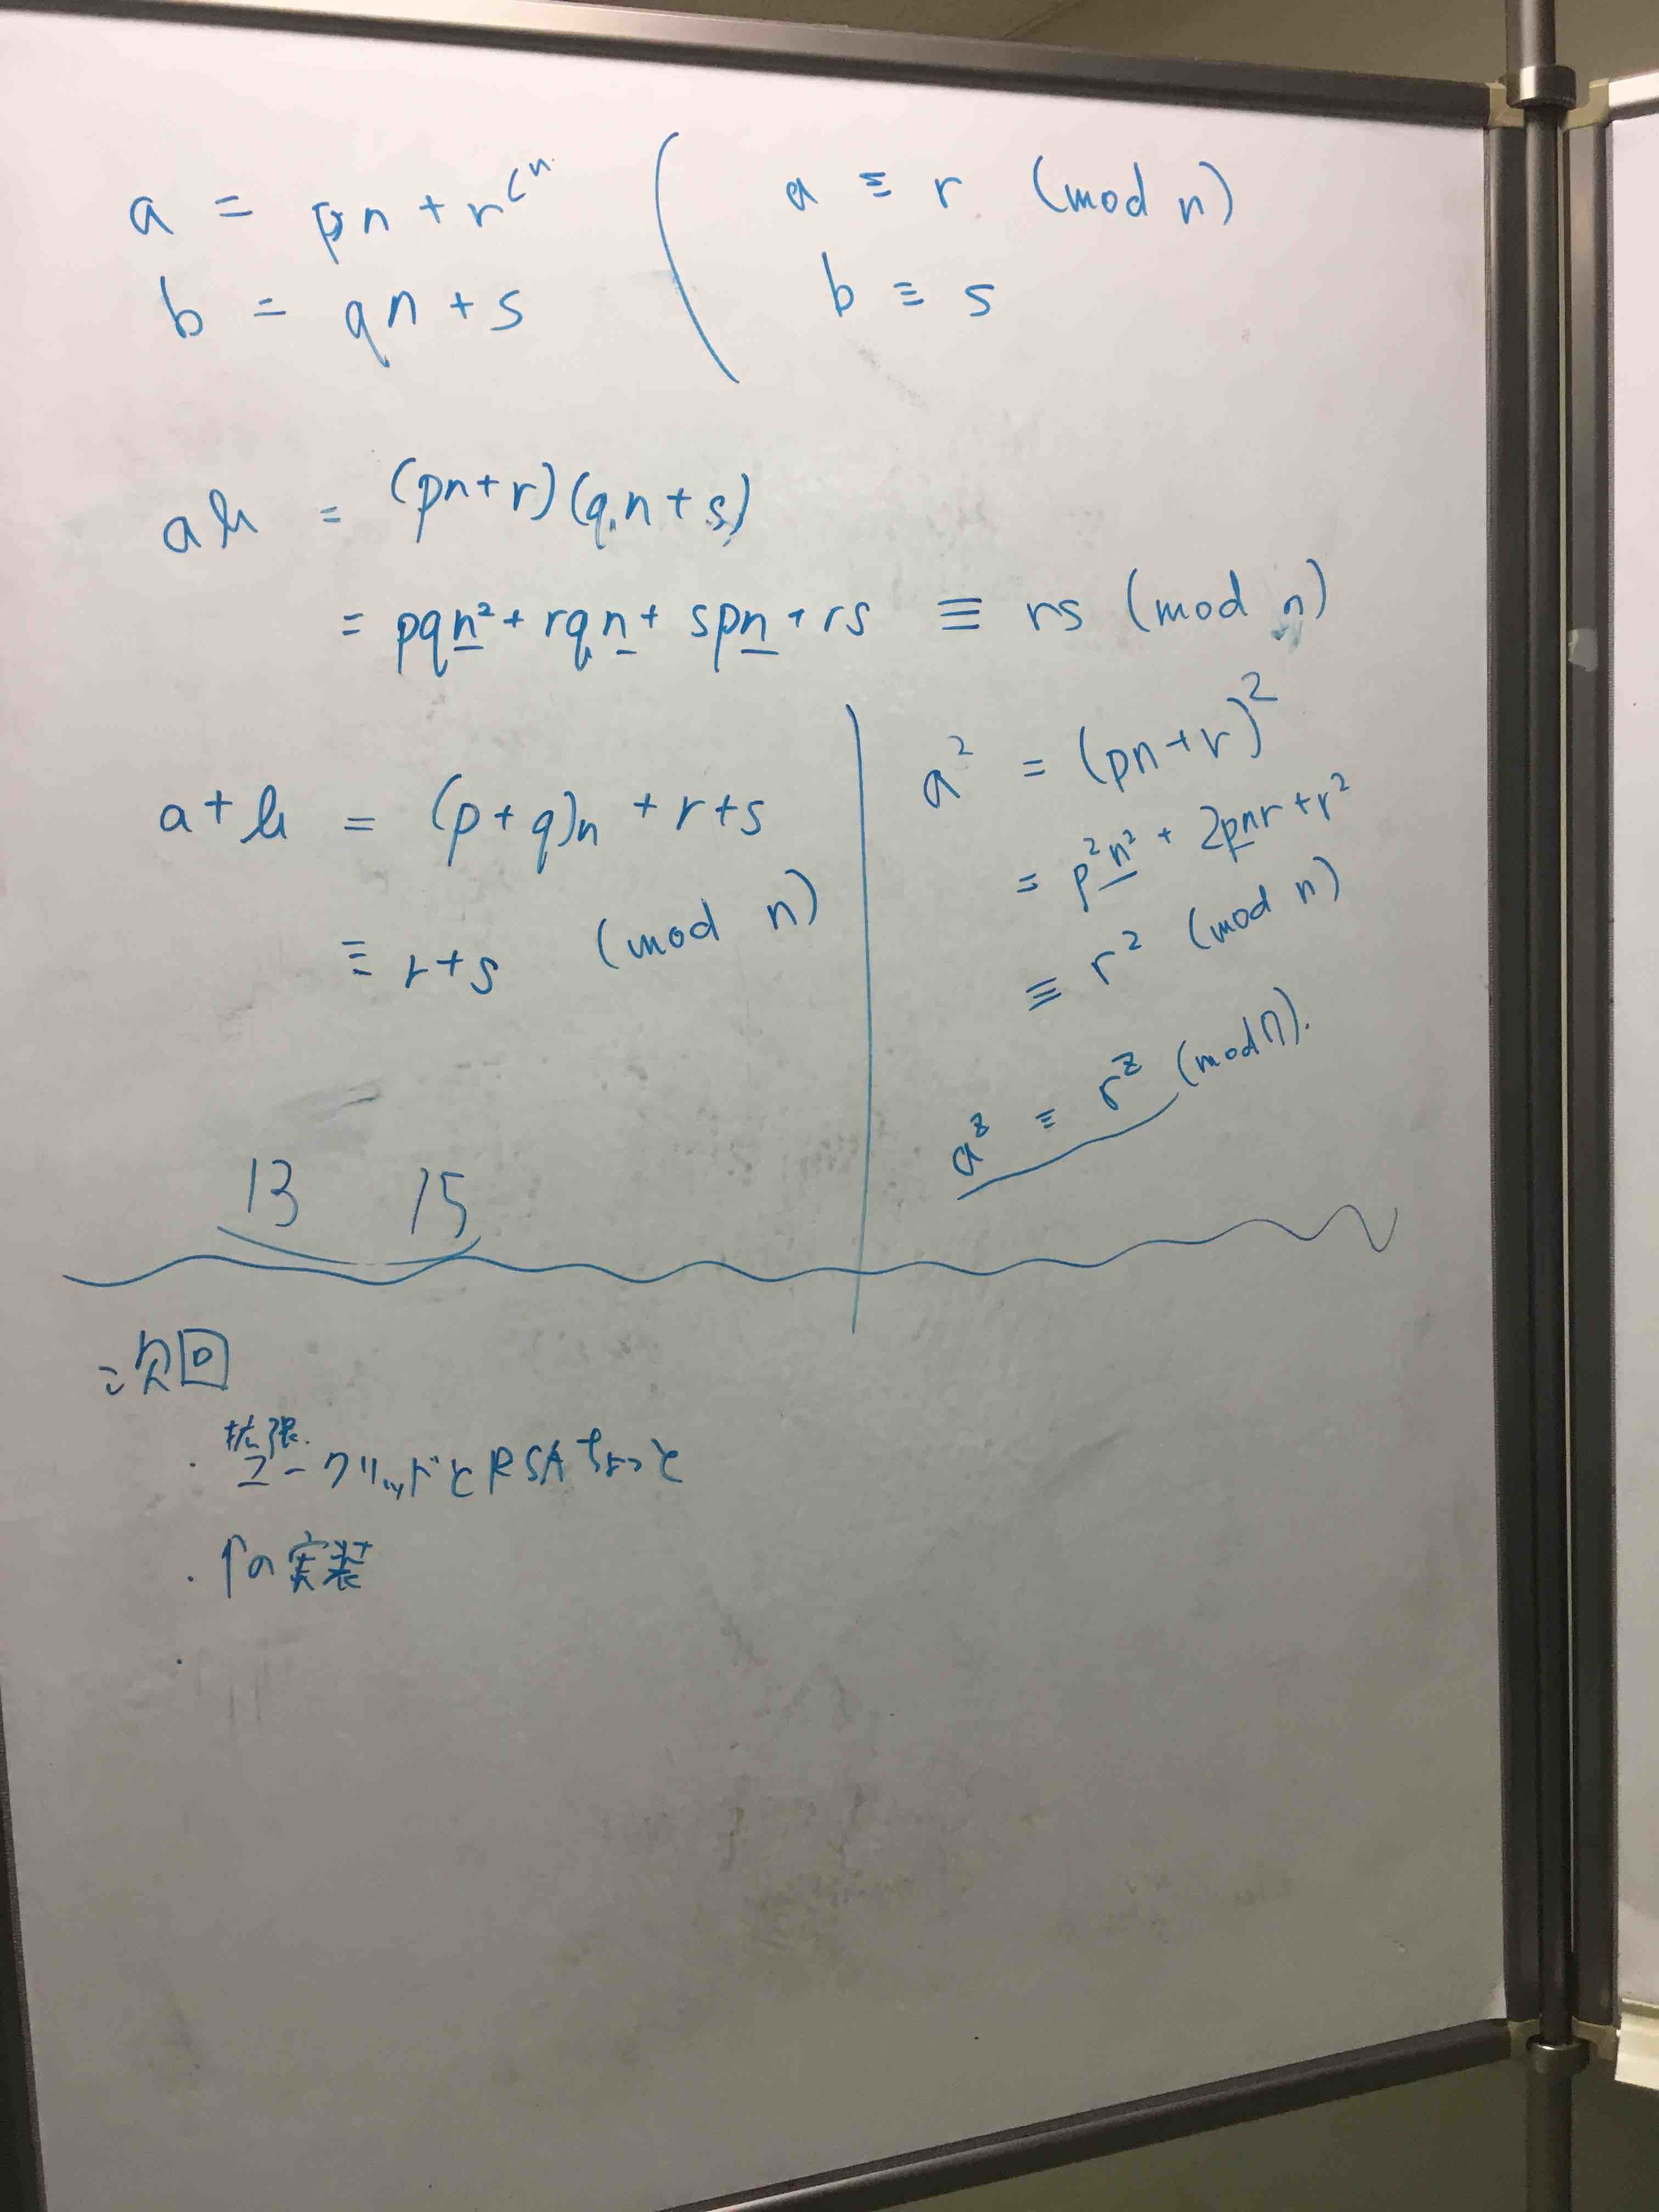 a = pn + r < n
b = qn + s
a ≡ r (mod n)
b ≡ s
ab = (pn+r)(qn+s)
= pqn² + rqn + spn + rs ≡ rs (mod n)
a+b = (p+q)n + r+s
≡ r+s (mod n)
a² = (pn+r)²
= p²n² + 2pnr + r²
≡ r² (mod n)
a^z ≡ r^z (mod n).
13 15
次回
・拡張ユークリッドとRSAちょっと
・↑の実装
・